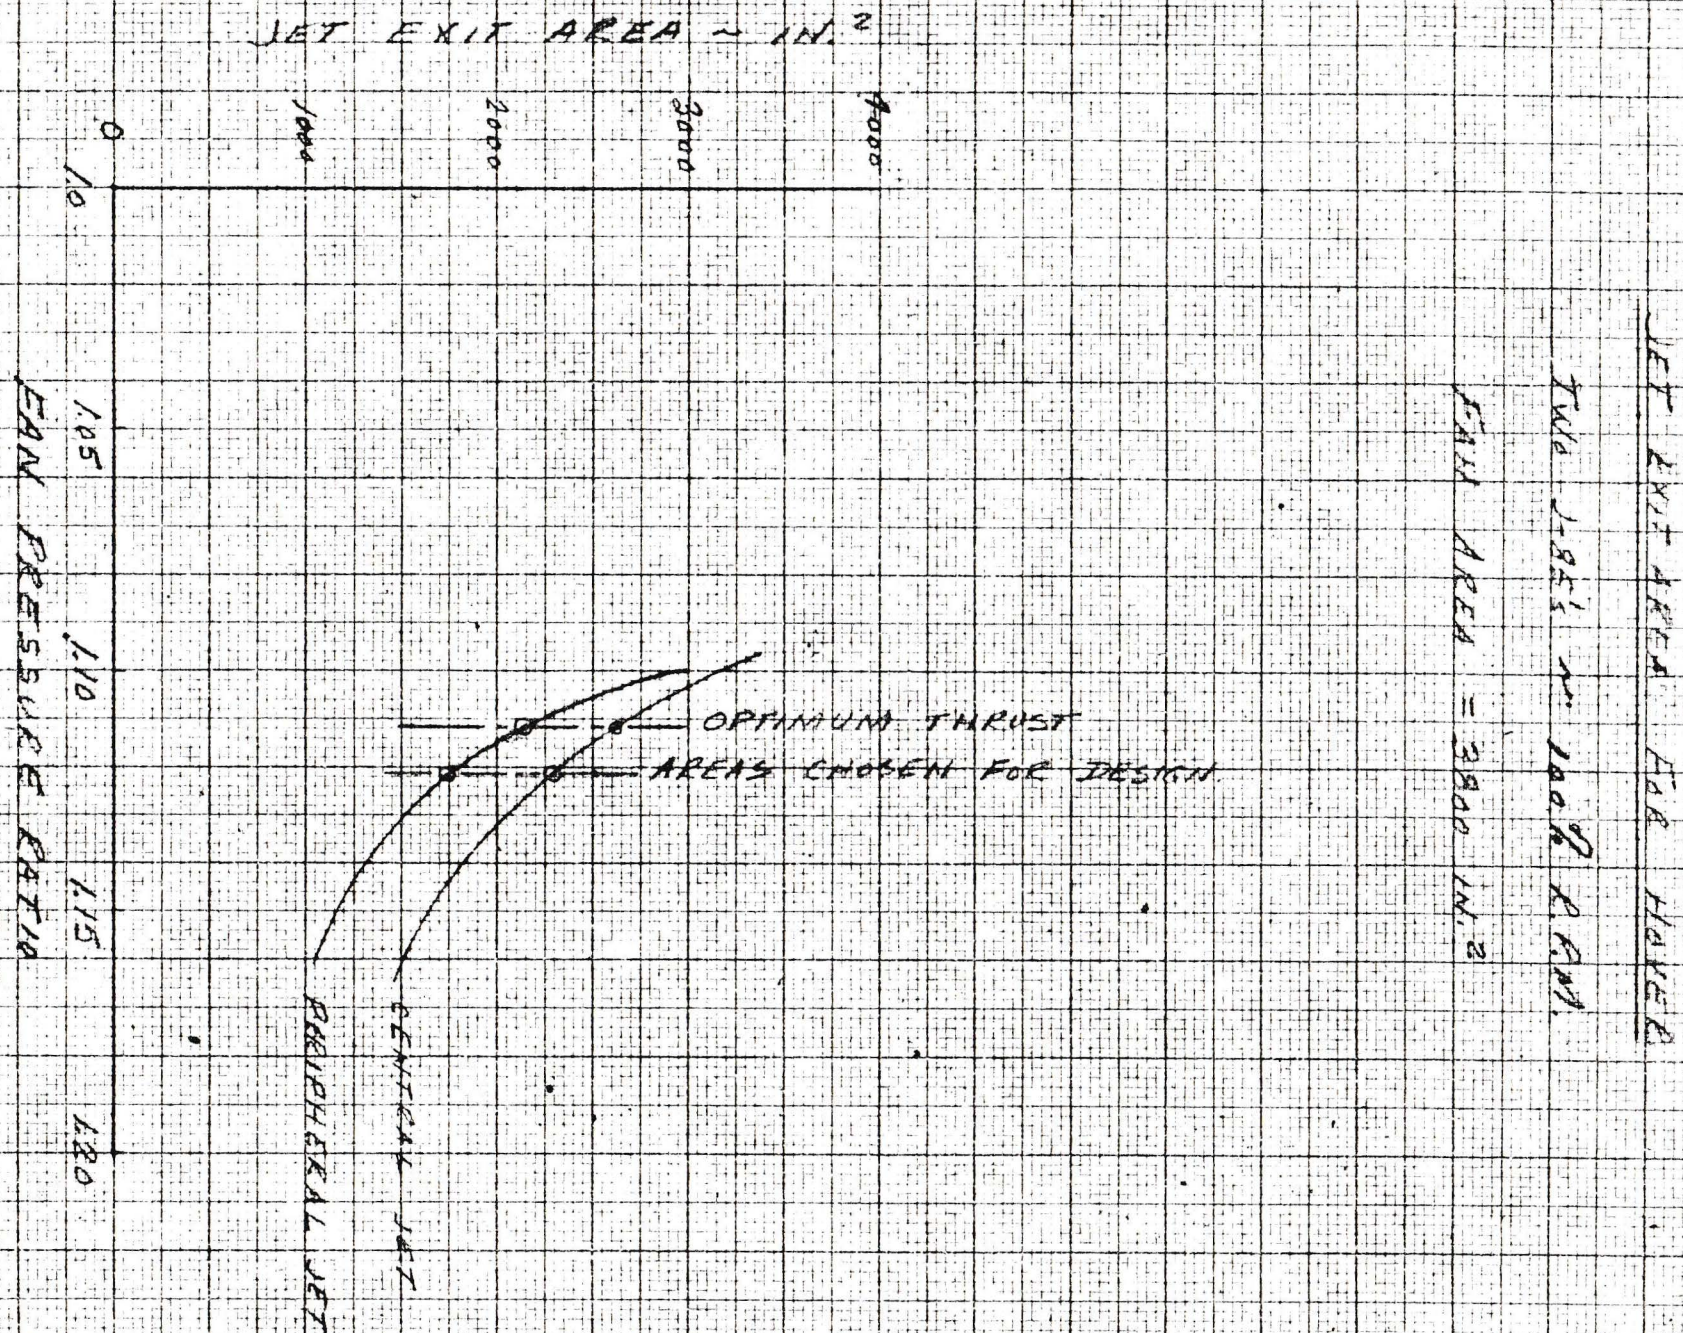 JET EXIT AREA FOR HOVER
TWO J-85's ~ 100% R.P.M.
FAN AREA = 3800 IN.²
JET EXIT AREA ~ IN.²
4000
3000
2000
1000
0
1.0
1.05
1.10
1.15
1.20
FAN PRESSURE RATIO
OPTIMUM THRUST
AREAS CHOSEN FOR DESIGN
CENTRAL JET
PERIPHERAL JET